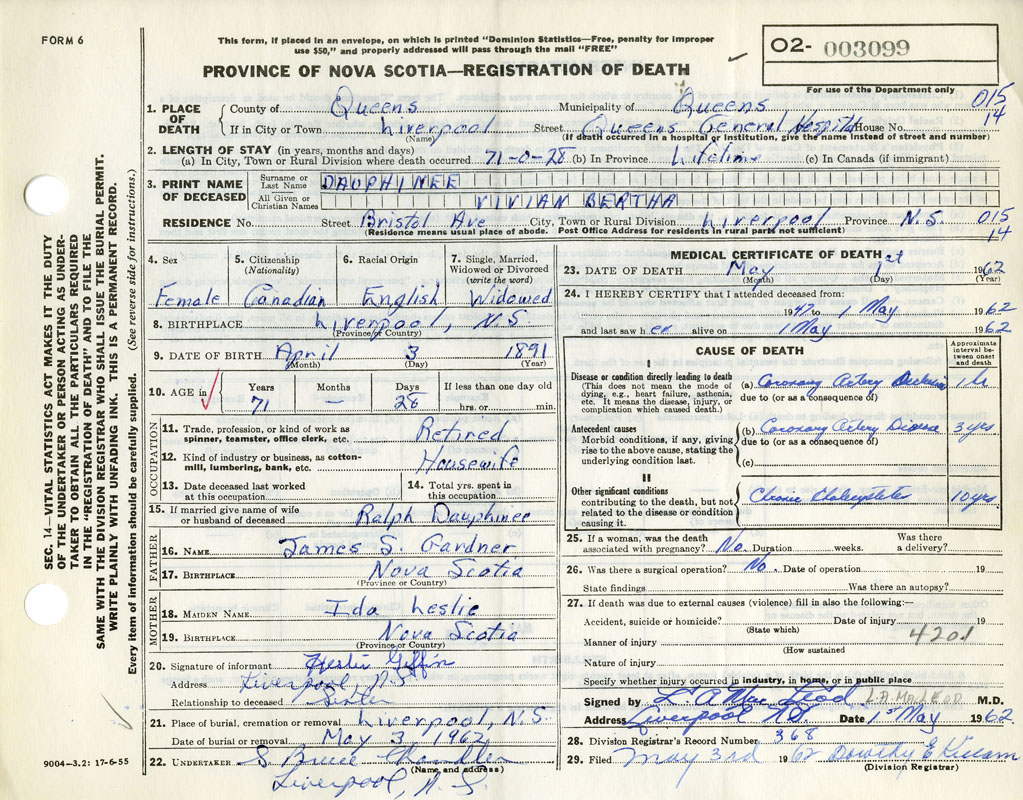 FORM 6
This form, if placed in an envelope, on which is printed "Dominion Statistics—Free, penalty for improper
use $50," and properly addressed will pass through the mail "FREE"
O2- 003099
PROVINCE OF NOVA SCOTIA—REGISTRATION OF DEATH
For use of the Department only
SEC. 14—VITAL STATISTICS ACT MAKES IT THE DUTY
OF THE UNDERTAKER OR PERSON ACTING AS UNDER-
TAKER TO OBTAIN ALL THE PARTICULARS REQUIRED
IN THE "REGISTRATION OF DEATH" AND TO FILE THE
SAME WITH THE DIVISION REGISTRAR WHO SHALL ISSUE THE BURIAL PERMIT.
WRITE PLAINLY WITH UNFADING INK. THIS IS A PERMANENT RECORD.
Every item of information should be carefully supplied. (See reverse side for instructions.)
1. PLACE OF DEATH
County of Queens Municipality of Queens 015
If in City or Town Liverpool Street Queens General Hospital House No. 14
(Name) (If death occurred in a hospital or institution, give the name instead of street and number)
2. LENGTH OF STAY (in years, months and days)
(a) In City, Town or Rural Division where death occurred 71-0-28 (b) In Province Lifetime (c) In Canada (if immigrant)
3. PRINT NAME OF DECEASED
Surname or Last Name DAUPHINEE
All Given or Christian Names VIVIAN BERTHA
RESIDENCE No. Street Bristol Ave City, Town or Rural Division Liverpool Province N.S. 015
14
(Residence means usual place of abode. Post Office Address for residents in rural parts not sufficient)
4. Sex
Female
5. Citizenship
(Nationality)
Canadian
6. Racial Origin
English
7. Single, Married,
Widowed or Divorced
(write the word)
Widowed
8. BIRTHPLACE Liverpool, N.S
(Province or Country)
9. DATE OF BIRTH April 3 1891
(Month) (Day) (Year)
10. AGE in
Years Months Days If less than one day old
71 — 28 hrs. or min.
OCCUPATION
11. Trade, profession, or kind of work as
spinner, teamster, office clerk, etc. Retired
12. Kind of industry or business, as cotton-
mill, lumbering, bank, etc. Housewife
13. Date deceased last worked
at this occupation
14. Total yrs. spent in
this occupation
15. If married give name of wife
or husband of deceased Ralph Dauphinee
FATHER
16. NAME James S. Gardner
17. BIRTHPLACE Nova Scotia
(Province or Country)
MOTHER
18. MAIDEN NAME Ida Leslie
19. BIRTHPLACE Nova Scotia
(Province or Country)
20. Signature of informant Giffin
Address Liverpool, N.S
Relationship to deceased Sister
21. Place of burial, cremation or removal Liverpool, N.S.
Date of burial or removal May 3 1962
22. UNDERTAKER S. Bruce Chandler
(Name and address)
Liverpool, N.S.
9004—3.2: 17-6-55
MEDICAL CERTIFICATE OF DEATH
23. DATE OF DEATH May 1st 1962
(Month) (Day) (Year)
24. I HEREBY CERTIFY that I attended deceased from:
1947 to 1 May 1962
and last saw her alive on 1 May 1962
CAUSE OF DEATH
Approximate
interval be-
tween onset
and death
I
Disease or condition directly leading to death
(This does not mean the mode of
dying, e.g., heart failure, asthenia,
etc. It means the disease, injury, or
complication which caused death.)
(a) Coronary Artery
due to (or as a consequence of)
Antecedent causes
Morbid conditions, if any, giving
rise to the above cause, stating the
underlying condition last.
(b) Coronary Artery Disease 3 yrs
due to (or as a consequence of)
(c)
II
Other significant conditions
contributing to the death, but not
related to the disease or condition
causing it.
Chronic 10 yrs
25. If a woman, was the death
associated with pregnancy? No. Duration weeks. Was there
a delivery?
26. Was there a surgical operation? No. Date of operation 19
State findings Was there an autopsy?
27. If death was due to external causes (violence) fill in also the following:—
Accident, suicide or homicide? Date of injury 19
(State which)
4201
Manner of injury
(How sustained
Nature of injury
Specify whether injury occurred in industry, in home, or in public place
Signed by L A MacLeod L.A. McLEOD M.D.
Address Liverpool NS. Date 1st May 1962
28. Division Registrar's Record Number 368
29. Filed May 3rd 1962 Dorothy E Killam
(Division Registrar)